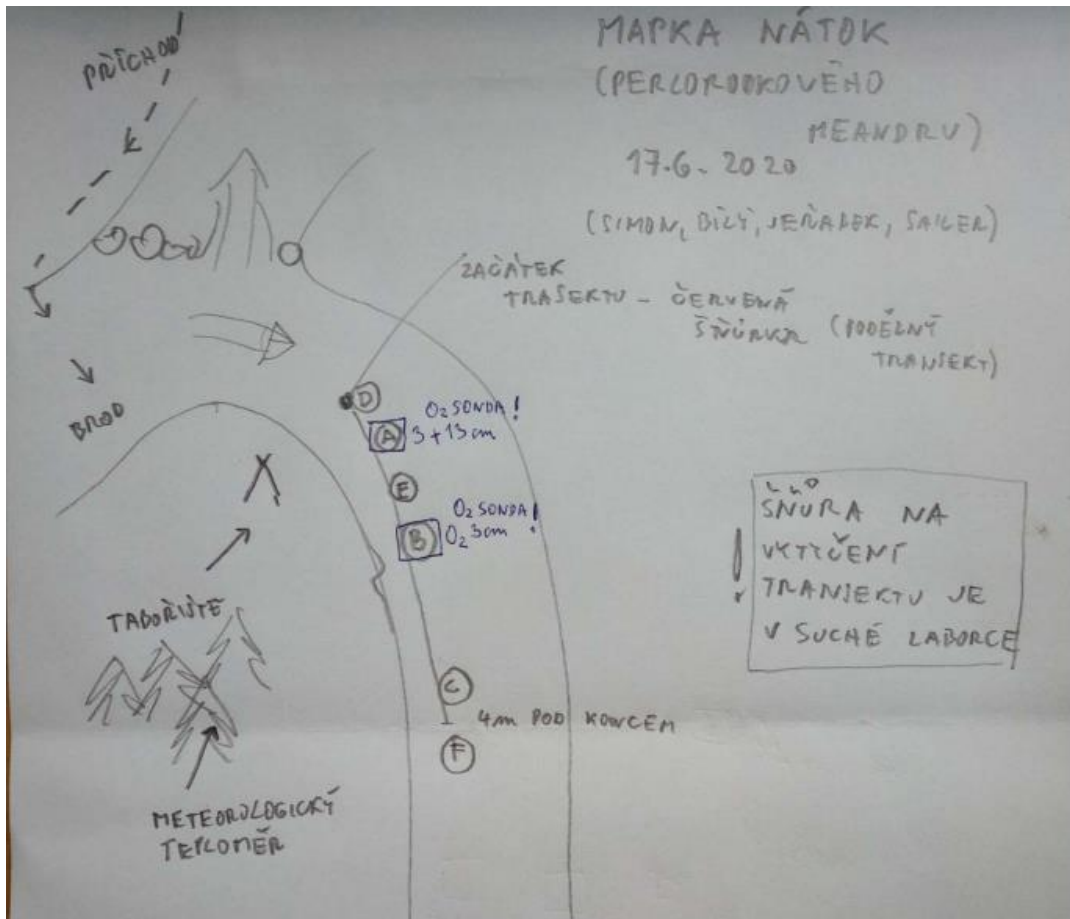 MAPKA NÁTOK
(PERLORODKOVÉHO
MEANDRU)
17.6. 2020
(SIMON, BÍLÝ, JEŘÁBEK, SAILER)
PŘÍCHOD
ZAČÁTEK
TRASEKTU - ČERVENÁ
ŠŇŮRKA (PODÉLNÝ
TRANSEKT)
BROD
D
O2 SONDA!
A 3+13cm
E
O2 SONDA!
B O2 3cm
ŠŇŮRA NA
VYTYČENÍ
! TRANSEKTU JE
V SUCHÉ LABORCE
TABOŘIŠTĚ
C
4m POD KONCEM
F
METEOROLOGICKÝ
TEPLOMĚR